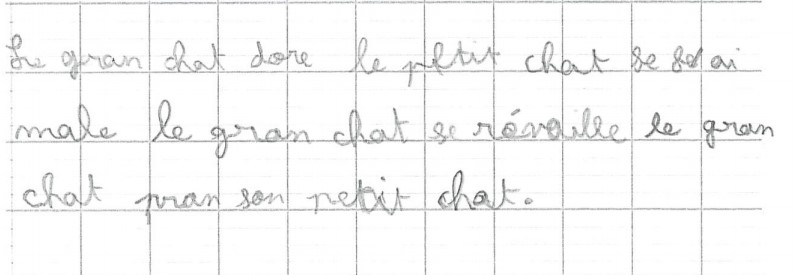 Le gran chat dore le petit chat se fai
male le gran chat se révaille le gran
chat pran son petit chat.